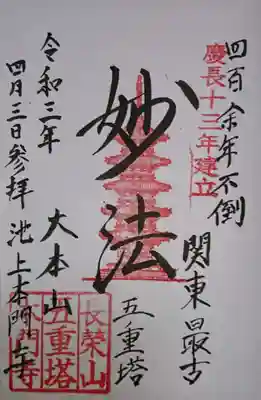 四百余年不倒
慶長十三年建立
関東最古
五重塔
妙法
大本山
池上本門寺
令和三年
四月三日参拝
長榮山
五重塔
本門寺